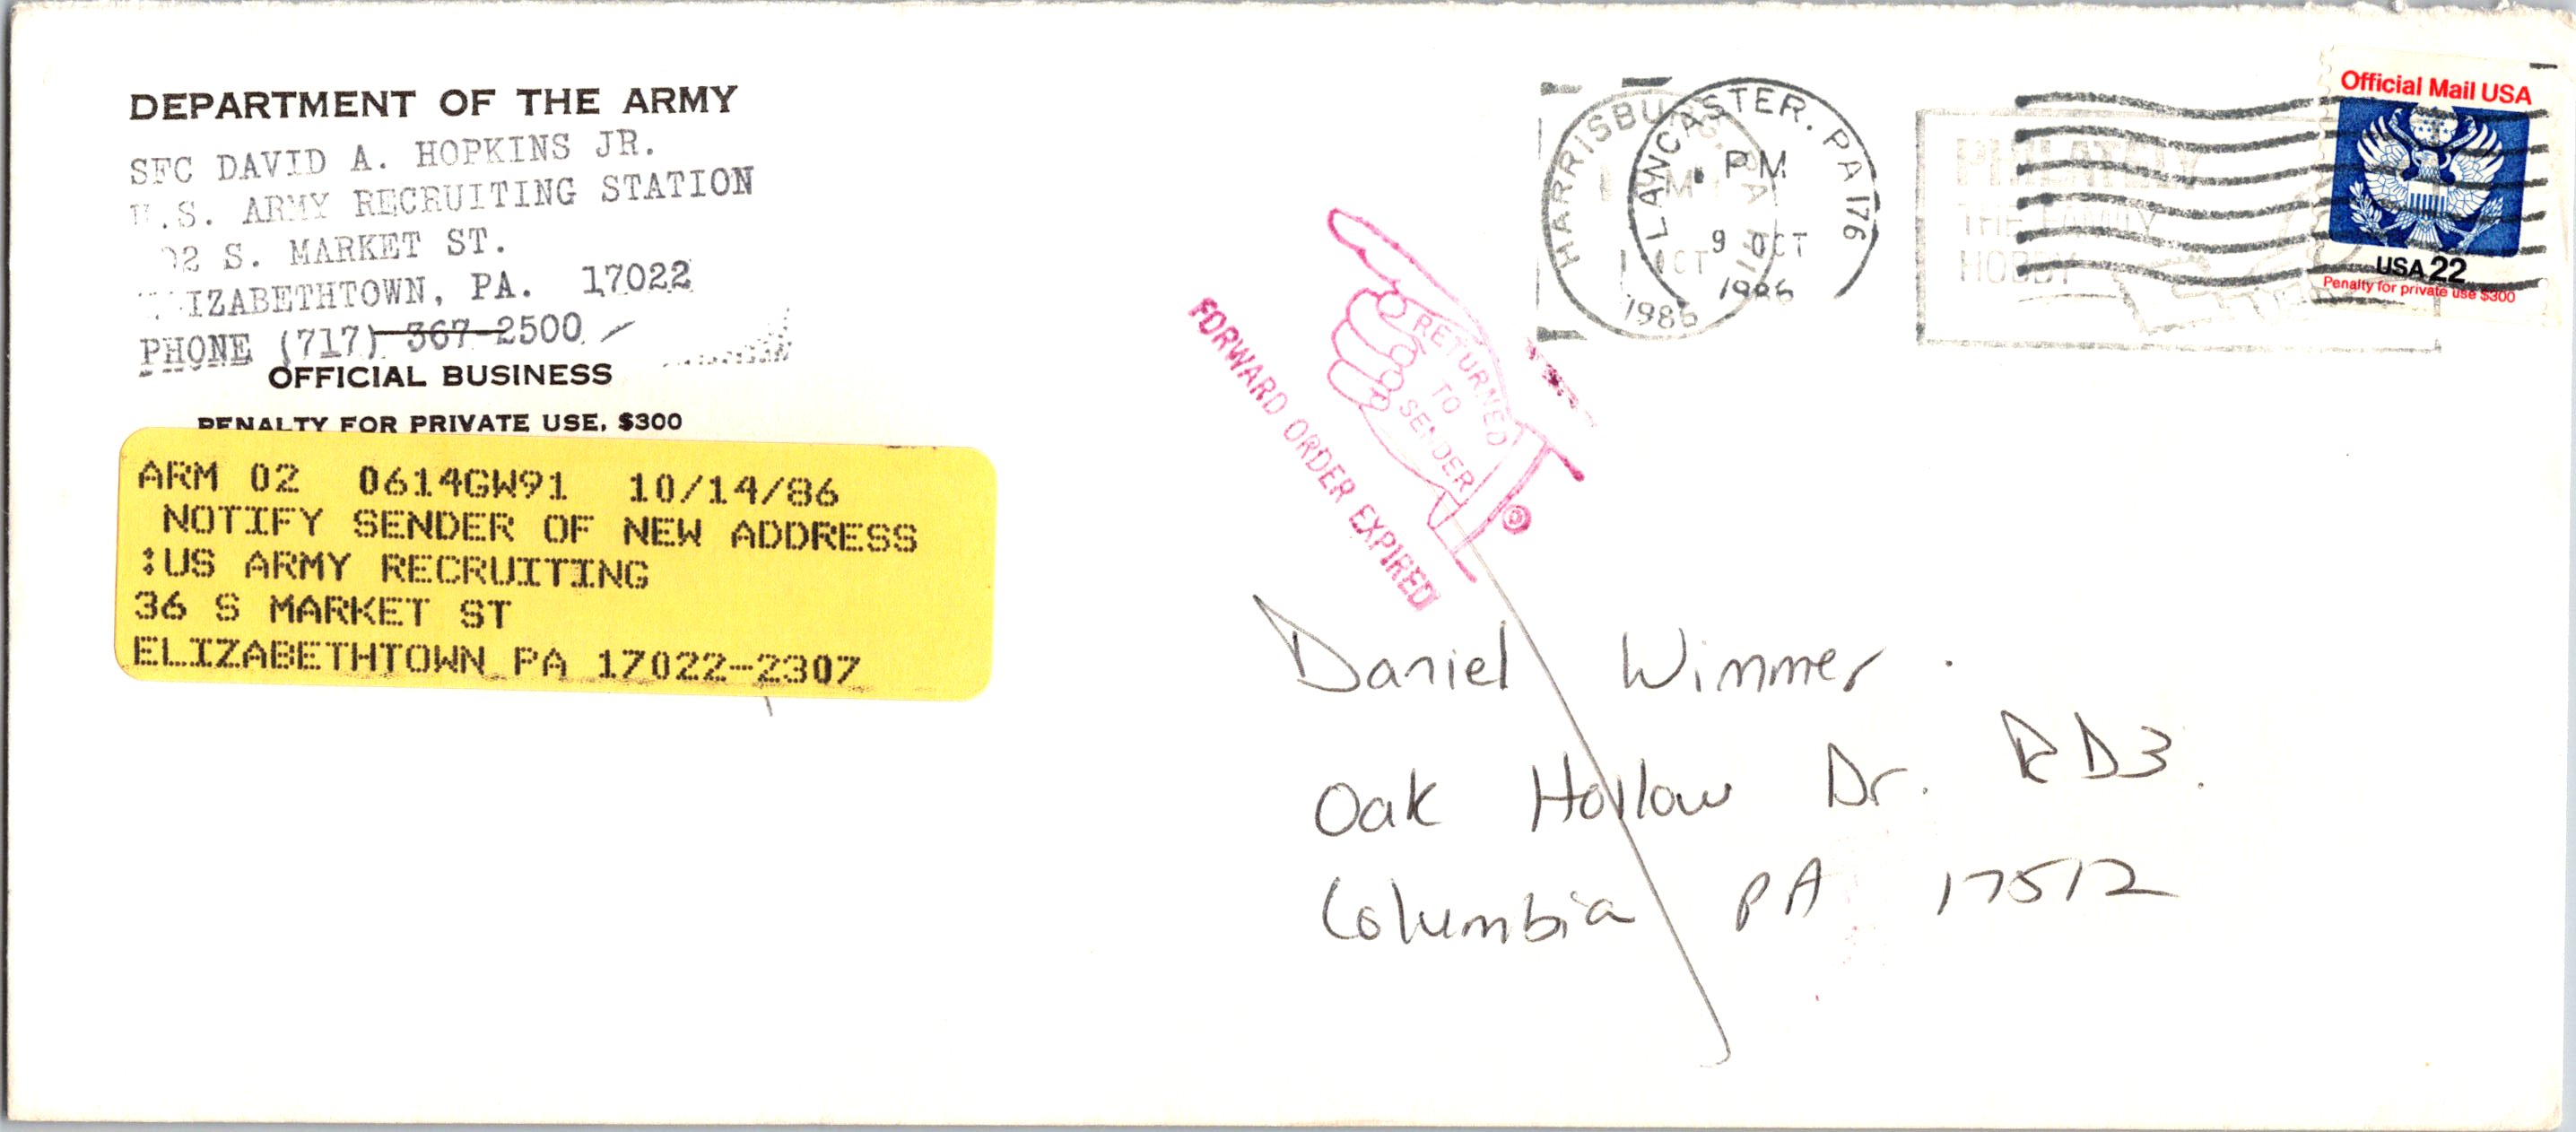 DEPARTMENT OF THE ARMY
SFC DAVID A. HOPKINS JR.
U.S. ARMY RECRUITING STATION
02 S. MARKET ST.
IZABETHTOWN, PA. 17022
PHONE (717) 367-2500
OFFICIAL BUSINESS
PENALTY FOR PRIVATE USE, $300
ARM 02 0614GW91 10/14/86
NOTIFY SENDER OF NEW ADDRESS
:US ARMY RECRUITING
36 S MARKET ST
ELIZABETHTOWN PA 17022-2307
FORWARD ORDER EXPIRED
RETURNED
TO
SENDER
HARRISBURG, PA 171
PM
OCT
1986
LANCASTER. PA 176
PM
9 OCT
1986
PHILATELY
THE FAMILY
HOBBY
Official Mail USA
USA 22
Penalty for private use $300
Daniel Wimmer
Oak Hollow Dr. RD3.
Columbia PA 17512